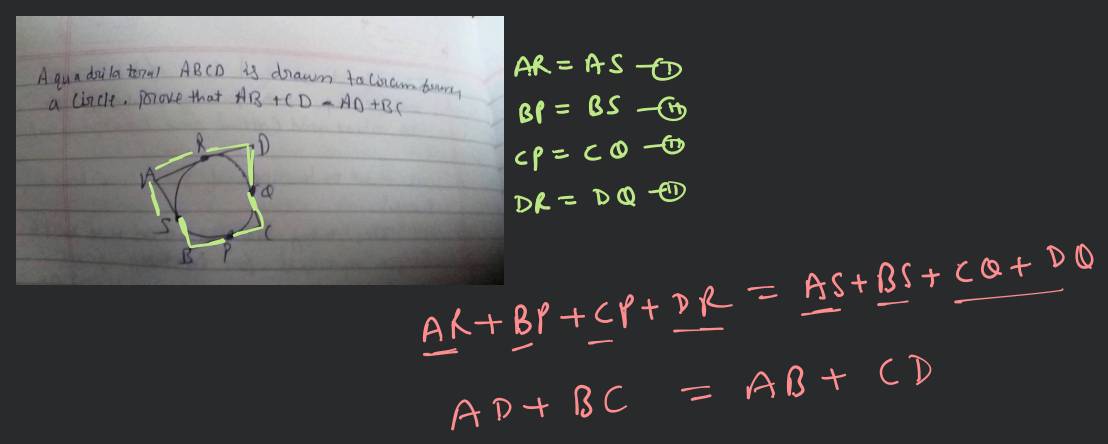 A quadrilateral ABCD is drawn to circum
a circle. prove that AB + CD = AD + BC
R
D
A
Q
S
C
B
P
AR = AS —Ⓘ
BP = BS —Ⓘ
CP = CQ —Ⓘ
DR = DQ —Ⓘ
AR + BP + CP + DR = AS + BS + CQ + DQ
AD + BC = AB + CD